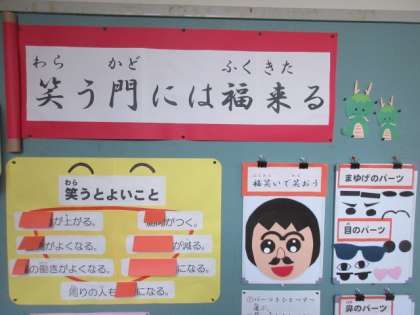 わら かど ふく きた
笑う門には福来る
わら
笑うとよいこと
が上がる。
がつく。
がよくなる。
が減る。
の働きがよくなる。
になる。
周りの人も
になる。
福笑いで笑おう
まゆげのパーツ
目のパーツ
鼻のパーツ